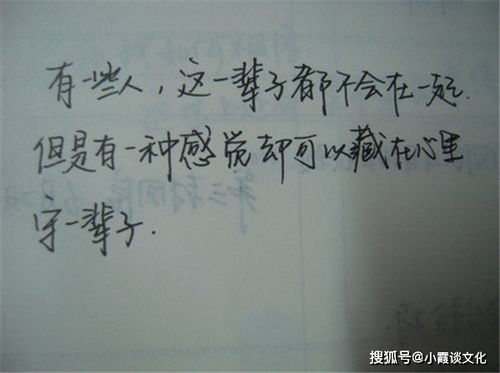 有一些人，这一辈子都不会在一起.
但是有一种感觉却可以藏在心里
守一辈子.
搜狐号@小霞谈文化